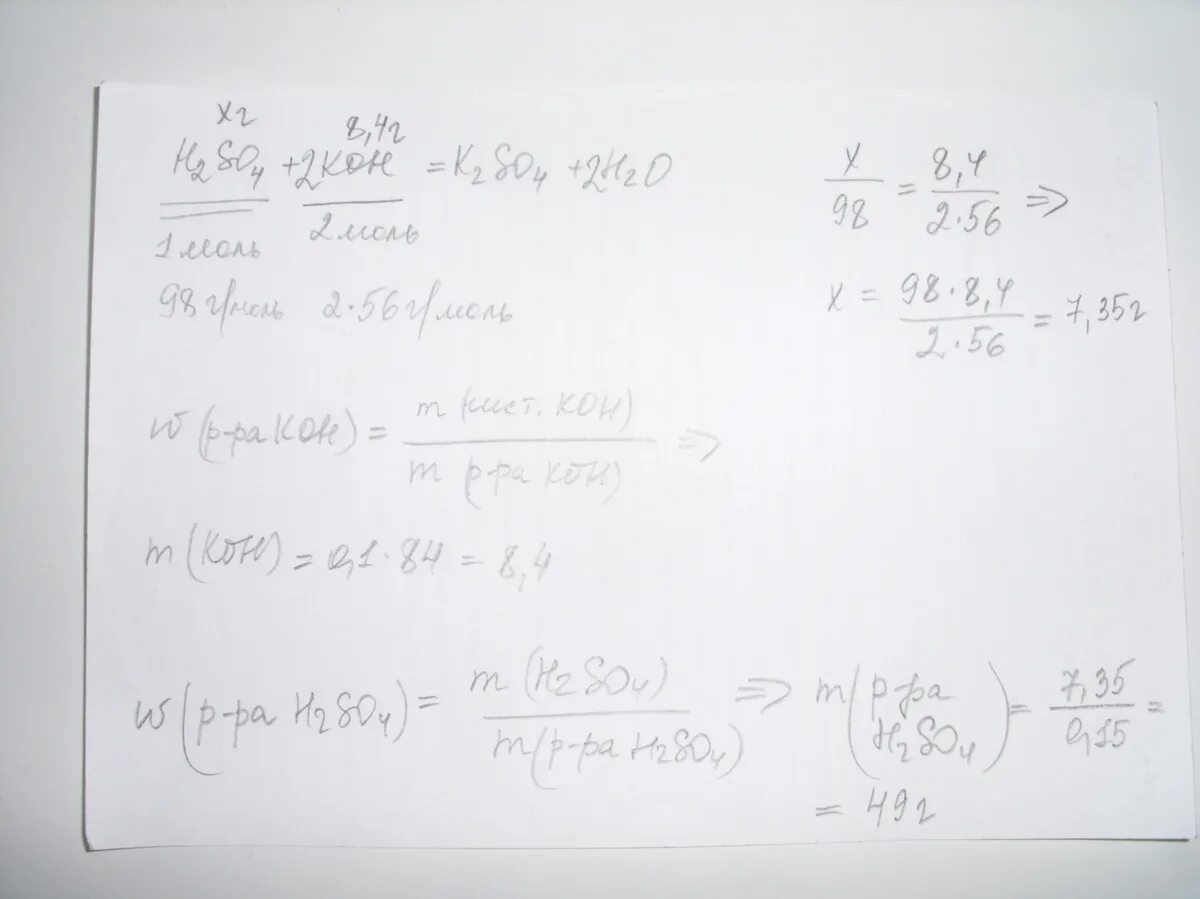 xг 8,4г
H₂SO₄ + 2KOH = K₂SO₄ + 2H₂O
1 моль 2 моль
98 г/моль 2·56 г/моль
x/98 = 8,4/2·56 ⇒
x = 98·8,4/2·56 = 7,35г
w (р-ра KOH) = m (чист. KOH)/m (р-ра KOH) ⇒
m (KOH) = 0,1·84 = 8,4
w (р-ра H₂SO₄) = m (H₂SO₄)/m (р-ра H₂SO₄) ⇒ m (р-ра H₂SO₄) = 7,35/0,15 =
= 49г